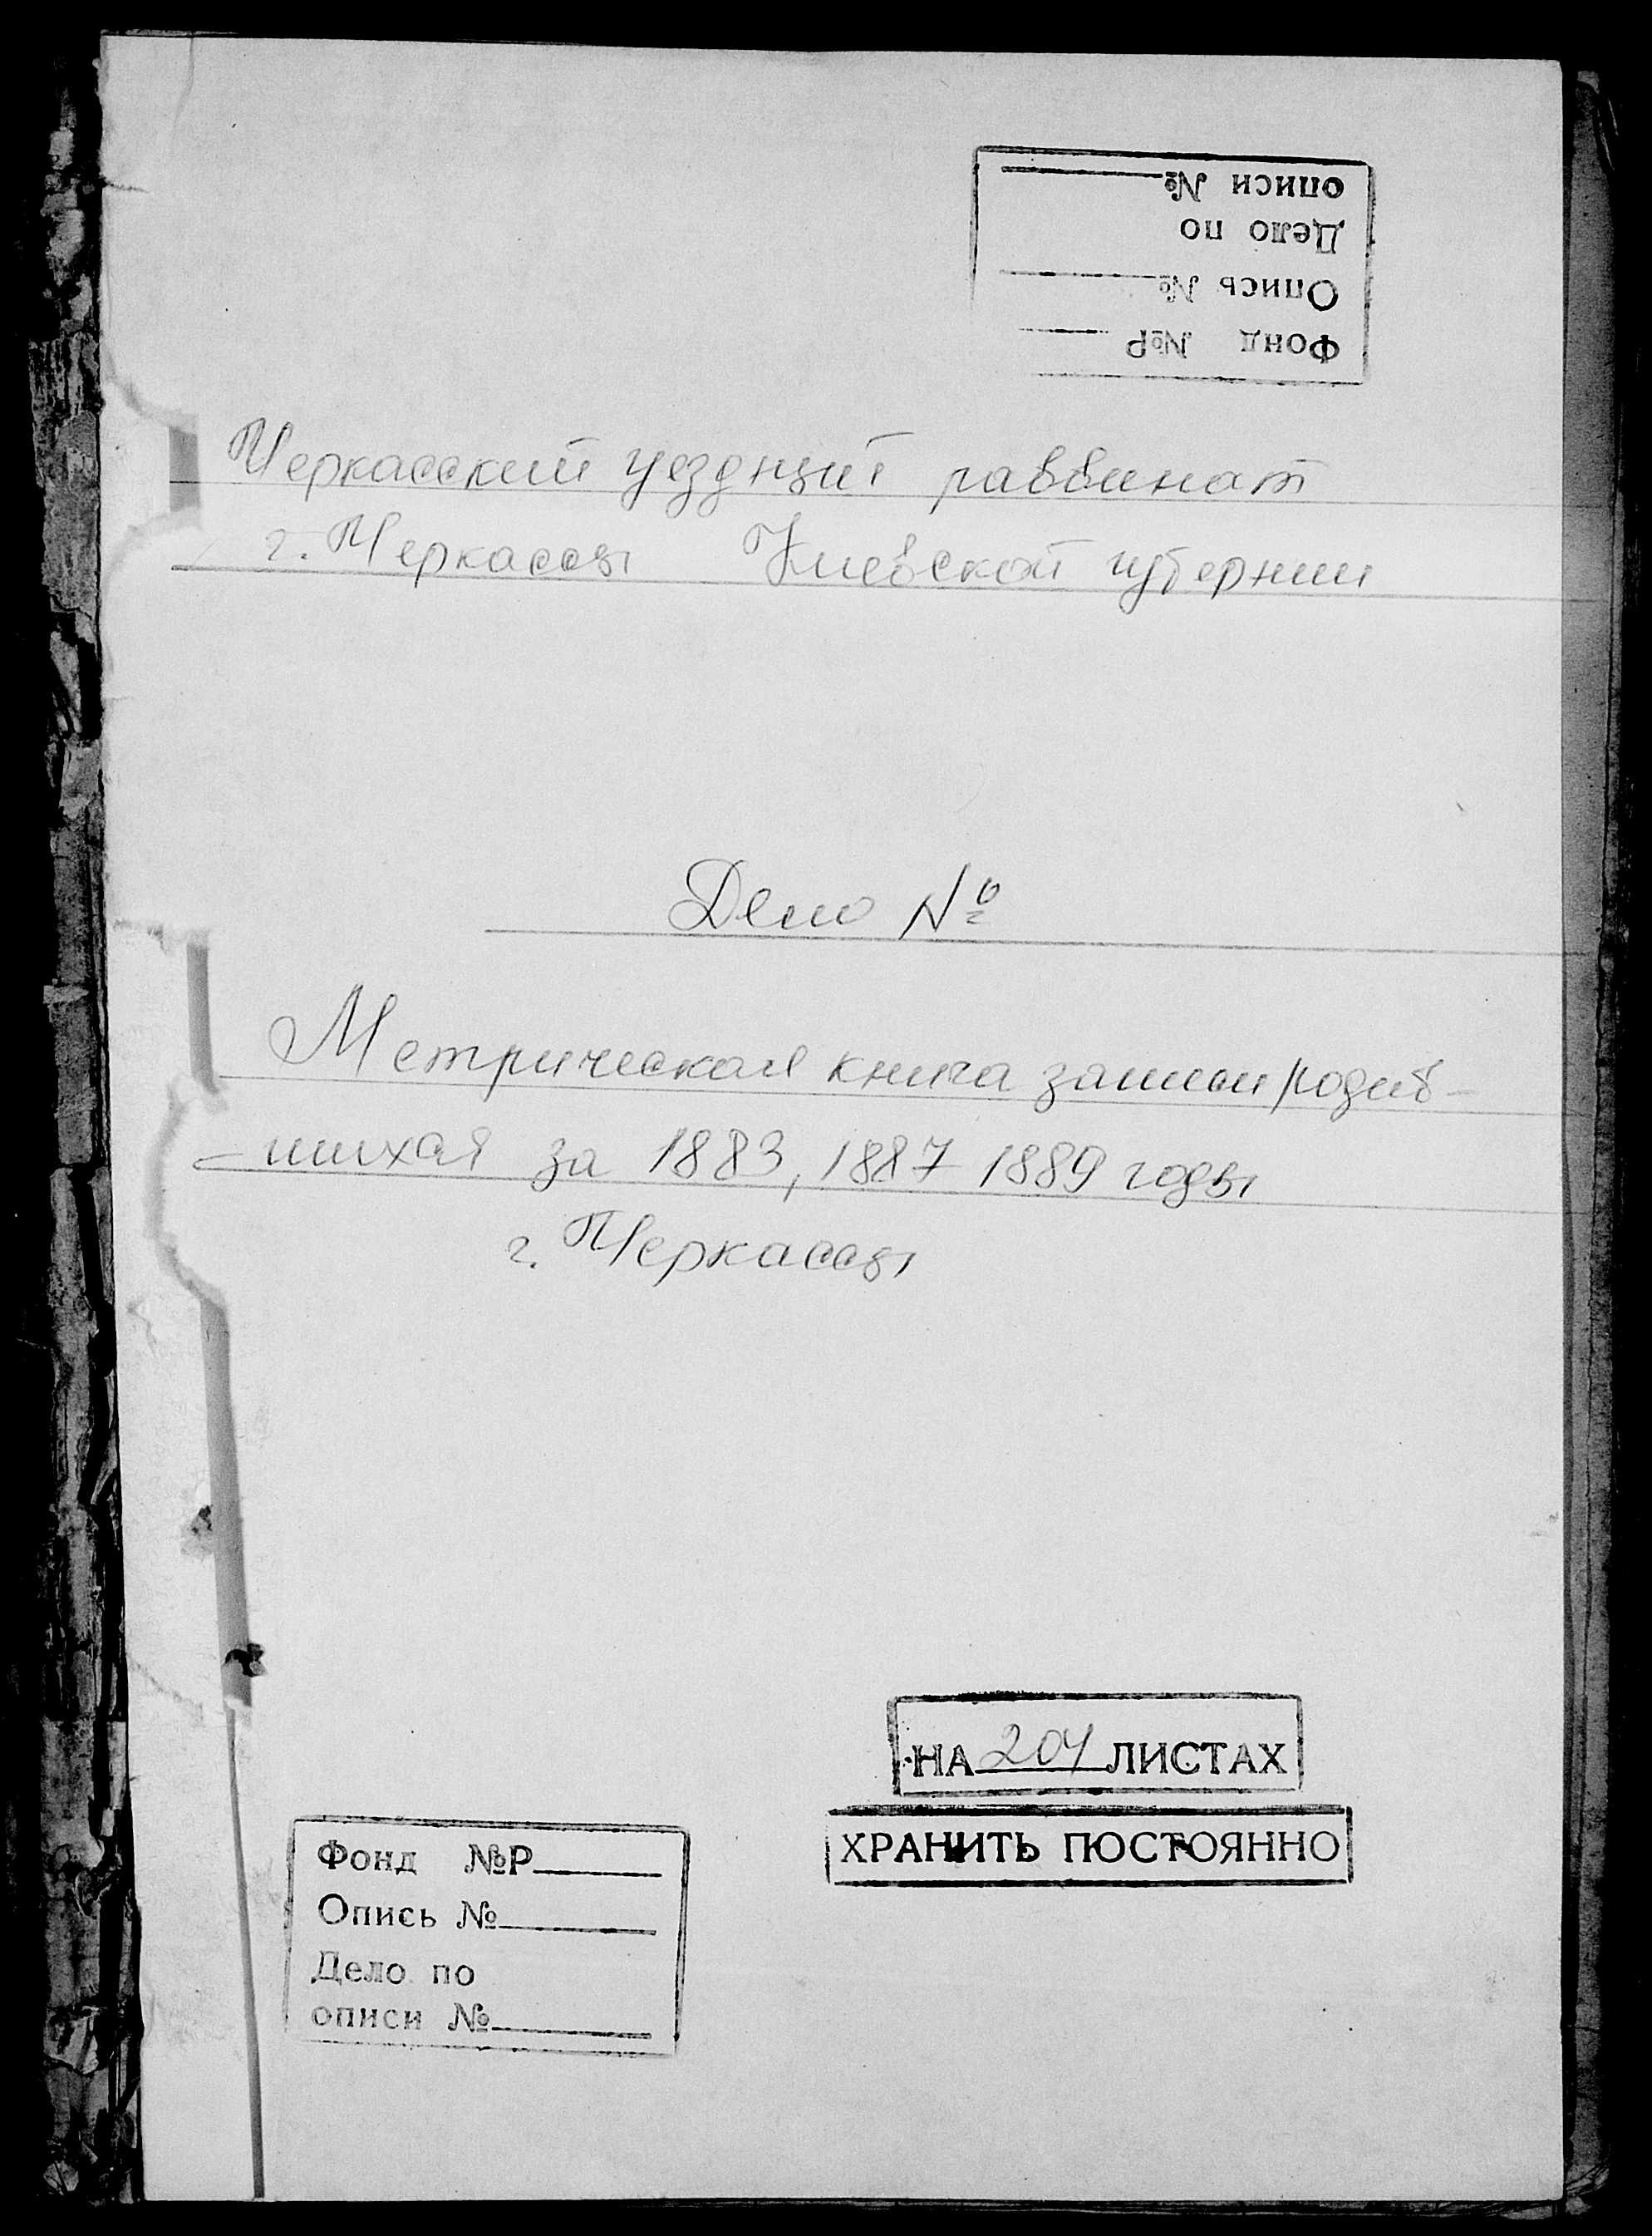 Фонд №Р
Опись №
Дело по
описи №
Черкасский уездный раввинат
г. Черкассы Киевской губернии
Дело №
Метрическая книга записи родив-
-шихся за 1883, 1887 1889 годы
г. Черкассы
НА 204 ЛИСТАХ
ХРАНИТЬ ПОСТОЯННО
Фонд №Р
Опись №
Дело по
описи №